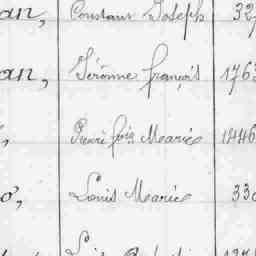 an, Constant Joseph 32
an, Jérôme françois 176
, Pierre fois Marie 1446
o, Louis Marie 33